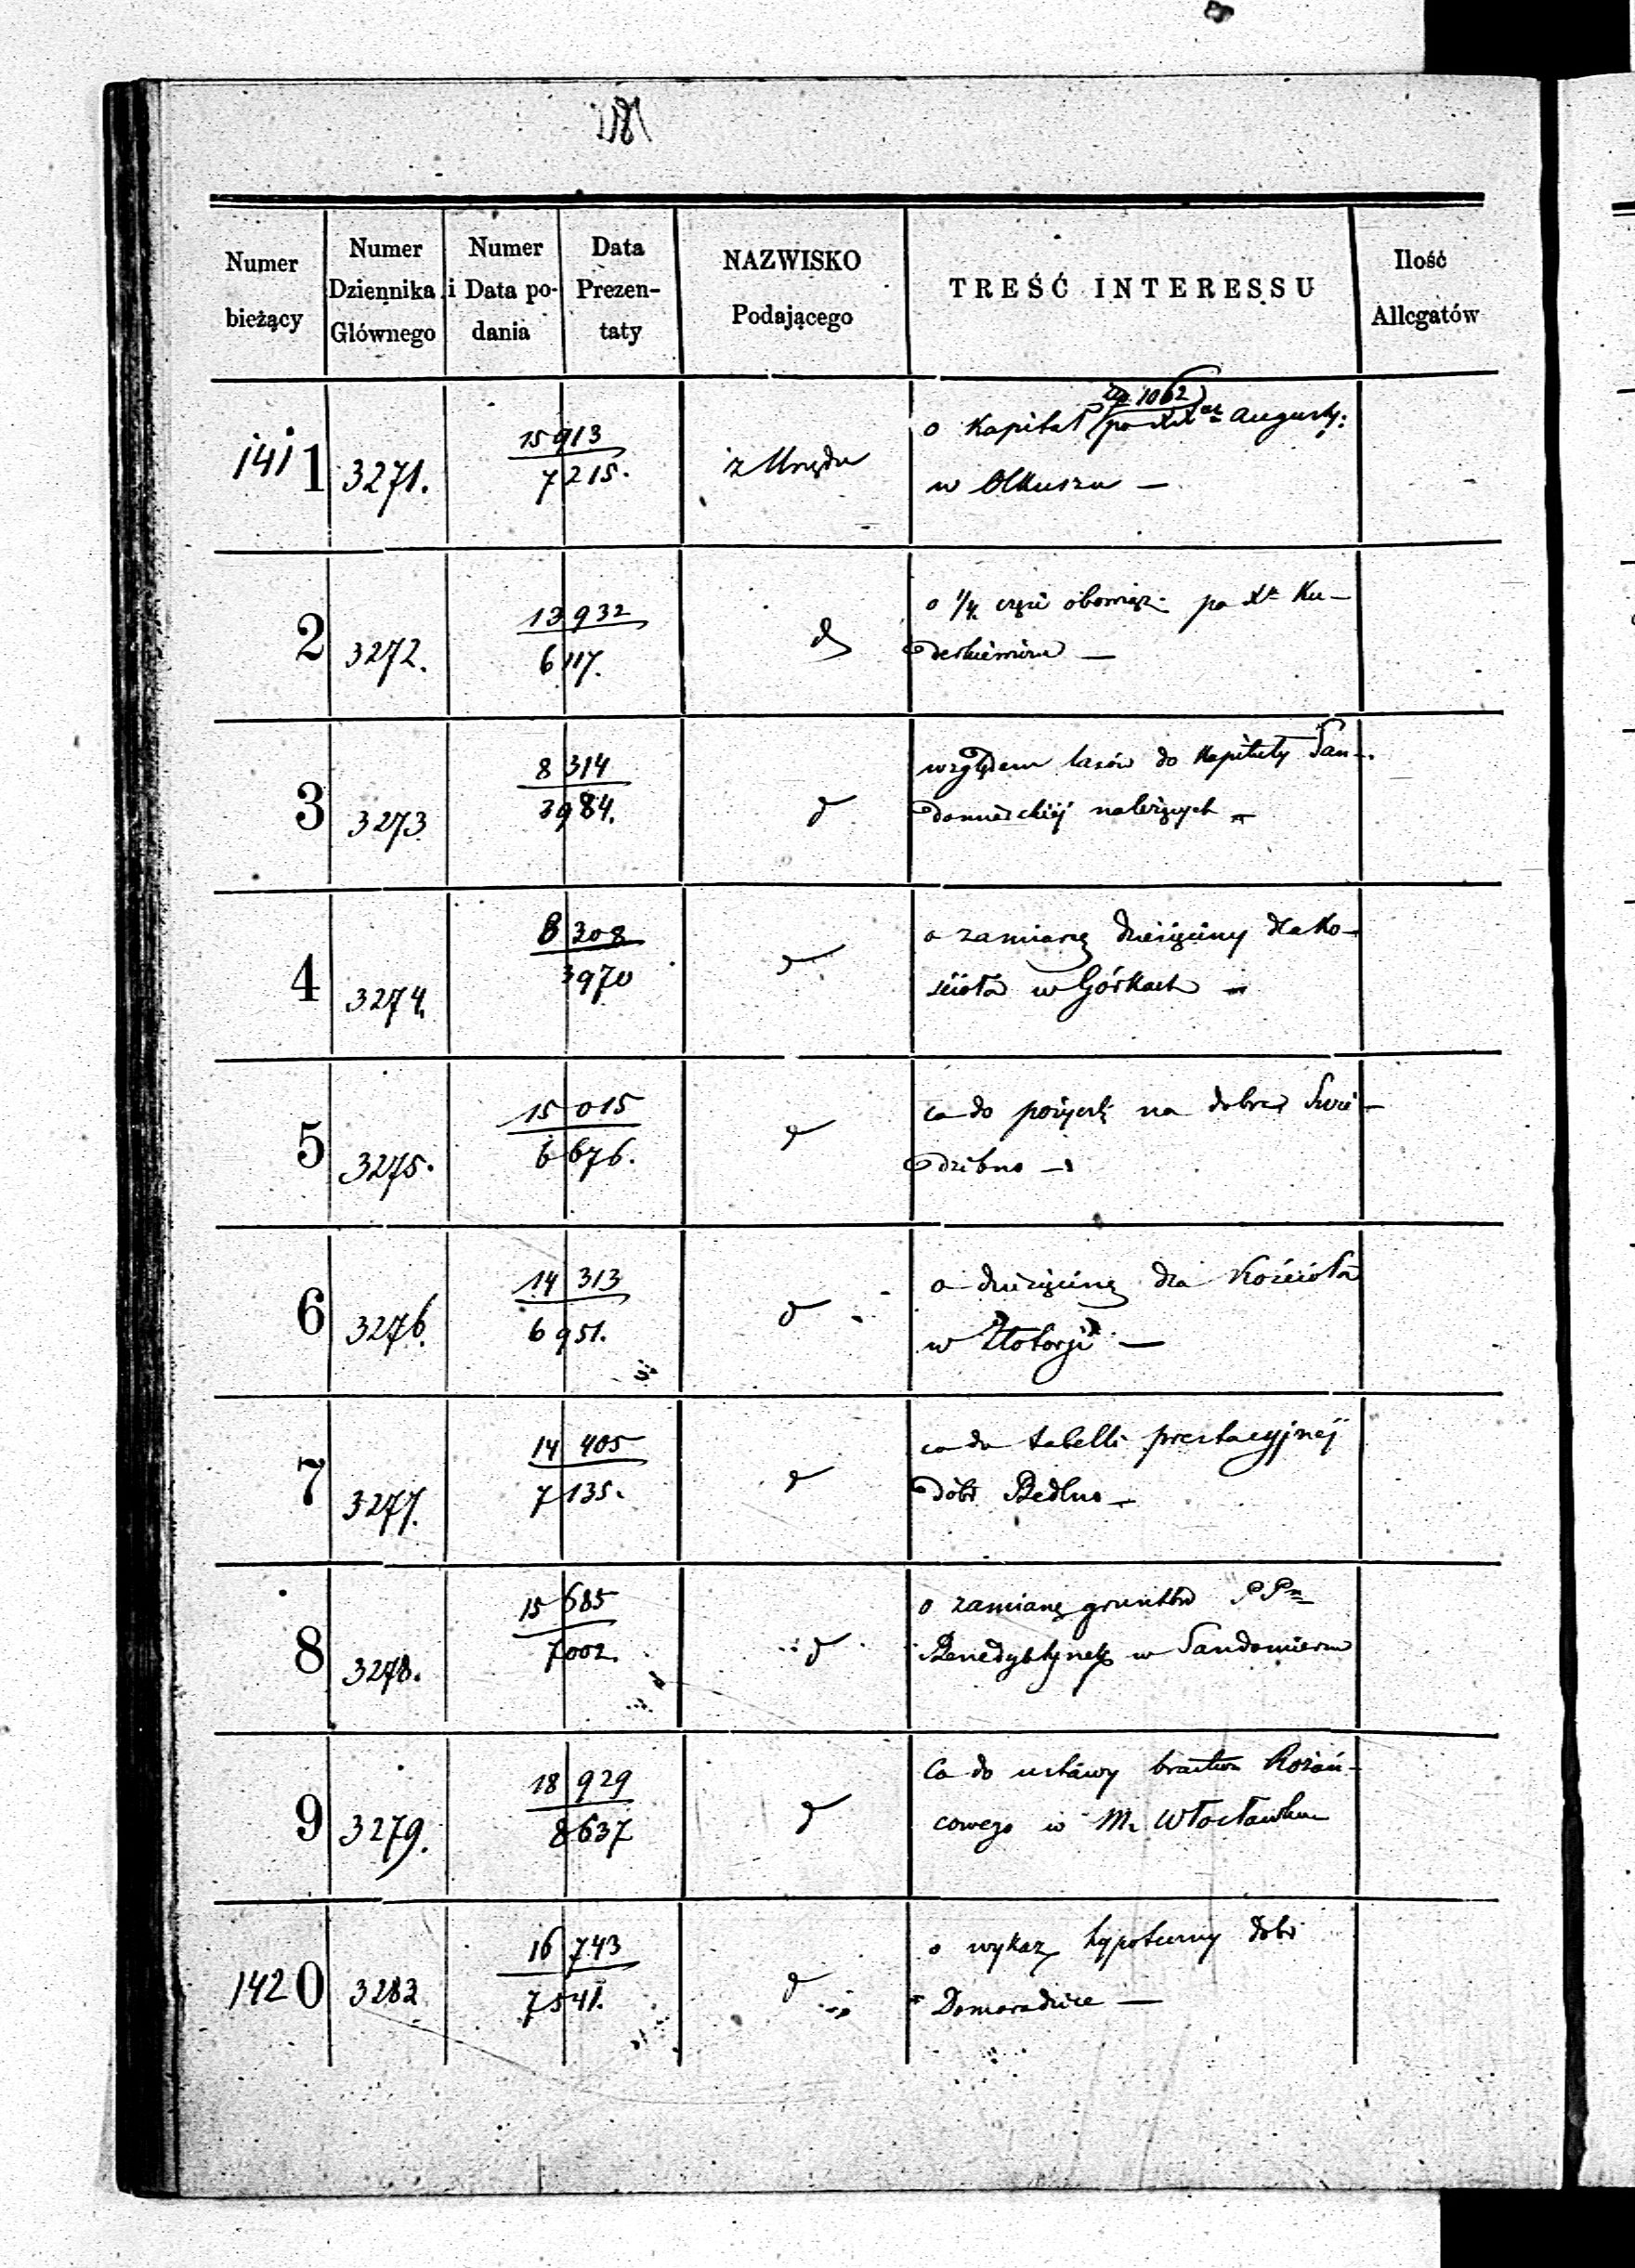 Numer bieżący
Numer Dziennika Głównego
Numer i Data podania
Data Prezentaty
NAZWISKO Podającego
TREŚĆ INTERESSU
Ilość Allegatów
1411 3271. 15913 z Urzędu o Kapitał zł 1062 po XX Augusty:
7215. w Olkuszu —
2 3272. 13932 d o 1/4 części obowiąz: po Xe Ku-
6117.
3 3273 8314 d względem lasów do Kapituły San-
3984. domierskiéj należących
4 3274. 8308 d o zamianę dziesięciny dla Ko-
3970 ścioła w Górkach —
5 3275. 15015 d co do pożyczki na dobra Świe-
6676. dzibno —
6 3276. 14313 d o dziesięcinę dla Kościoła
6951. w Złotoryi —
7 3277. 14405 d co do tabelli prestacyjnéj
7135. dóbr Bedlno —
8 3278. 15685 d o zamianę gruntów PPn
7002. Benedyktynek w Sandomierzu
9 3279. 18929 d Co do ustawy bractwa Różań-
8637 cowego w M. Włocławku
1420 3282 16743 d o wykaz hypoteczny dóbr
7541. Domoradzice —